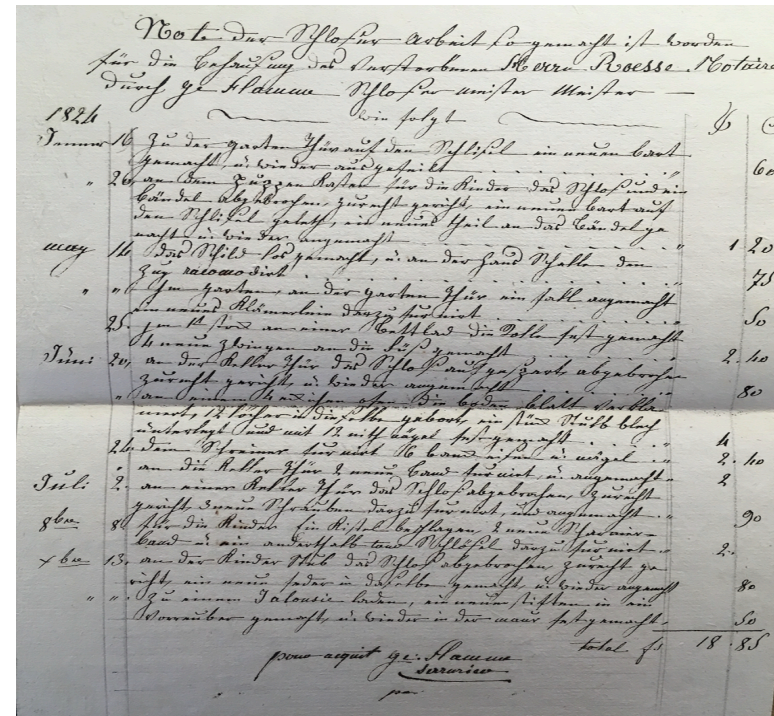 Note der Schloser Arbeit so gemacht ist worden
für die Behausung des verstorbenen Herrn Roesse Notaire
durch ge Flamme Schloser meister Meister —
wie folgt
1824 f C
Jenner 16 Zu der garten Thür auf den Schlisel ein neuen bart
gemacht, u. wieder aus geteilt 60
" 26 an dem Puppen Kasten für die Kinder das Schloß und ein
Bändel abgebrochen, zurecht gericht, ein neuen bart auf
den Schlisel geleth, ein neues theil an das Bändel ge
macht u. wieder angemacht 1 20
may 14 das Schild los gemacht, u. an der Haus Schelle den
Zug racomodirt 75
" " Im garten, an der garten Thür ein fall angemacht
ein neues Klämerlein darzu furnirt 50
25. im 1t stok an einer Bettlad die Rolle fest gemacht
4 neue Zwingen an die Füß gemacht 2. 40
Jüni 20, an der Keller Thür das Schloß auf gespert, abgebrochen
zurecht gericht, u. wieder angemacht 80
" an einem ofen die boden blatt
12 löcher in dieselbe gebort, ein stük blech
unterlegt und mit 12 nith nägel fest gemacht 4
24. dem Schreiner furnirt 16 band eisen u. nägel 2. 40
" an die Keller Thür 2 neue band furnirt, u. angemacht 2
Juli 2. an einer Keller Thür das Schloß abgebrochen, zurecht
gericht, 3 neue Schrauben darzu furnirt, und angemacht 90
8bre 8 für die Kinder ein Kistel beschlagen, 2 neue Scharnier-
band u. ein anderthalb Schlösel darzu furnirt 2.
xbre 13. an der Kinder Stub das Schloß abgebrochen, zurecht ge
richt, ein neue feder in daselbe gemacht, u. wieder angemacht 80
" " Zu einem Jalousie laden, ein neuen stiften in ein
Vorreuber gemacht, u. wieder in der maur fest gemacht 50
total fs 18 85
pour acquit ge. Flamme
serrurier